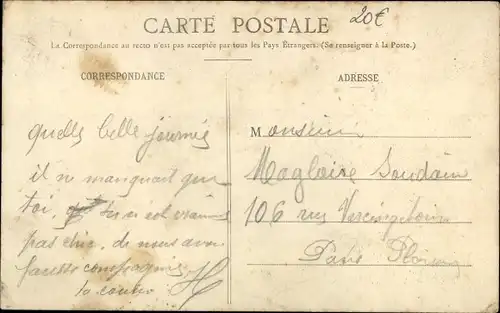 CARTE POSTALE
20€
La Correspondance au recto n'est pas acceptée par tous les Pays Étrangers. (Se renseigner à la Poste.)
CORRESPONDANCE
quelle belle journée
il ne manquait que
toi, tu n'est vraiment
pas chic, de nous avoir
fausse compagnie
H
ADRESSE
Monsieur
Magloire Soudain
106 rue Vercingétorix
Paris